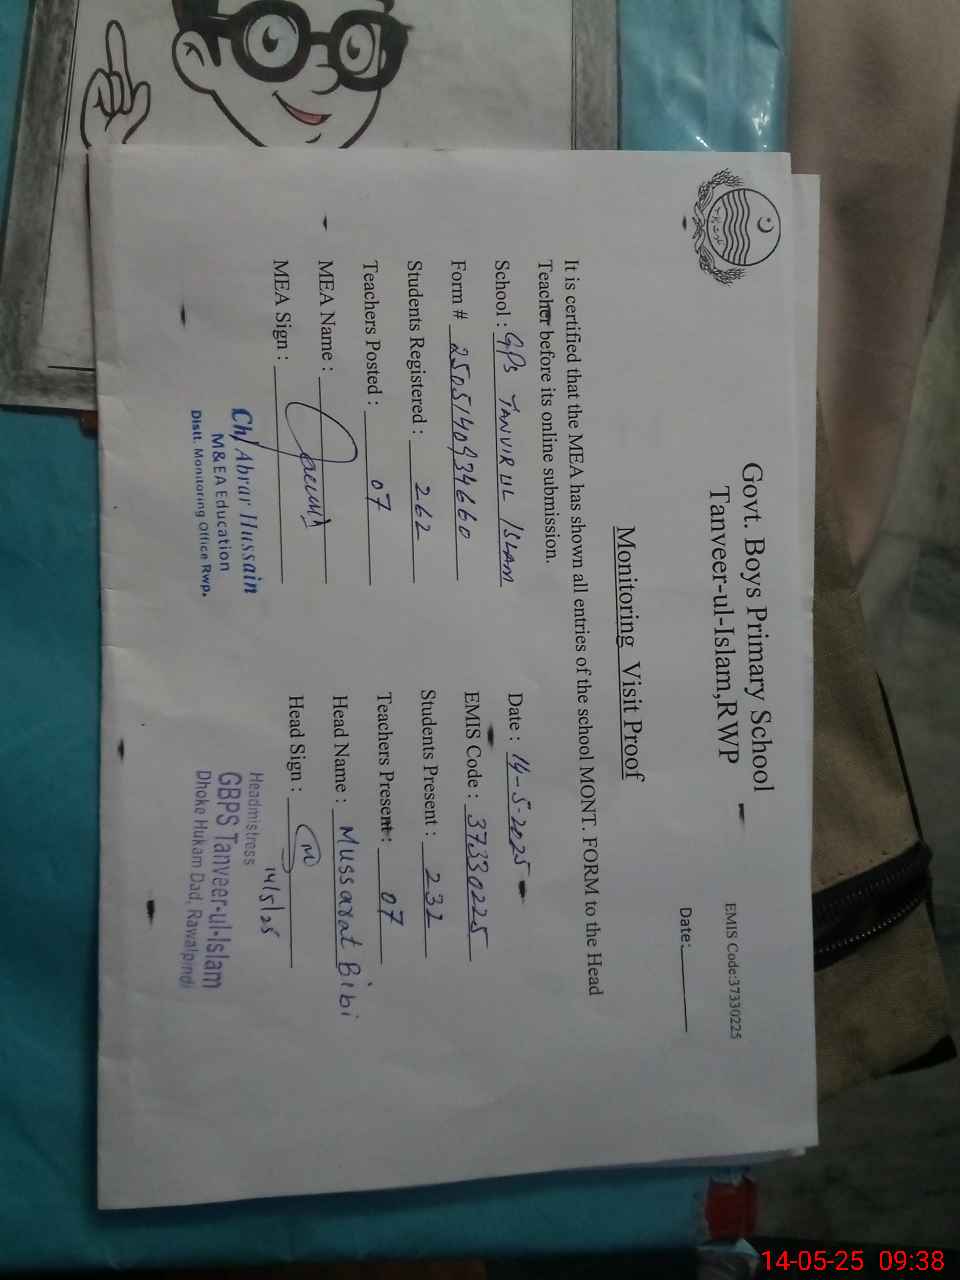 Govt. Boys Primary School
Tanveer-ul-Islam,RWP
EMIS Code:37330225
Date:
Monitoring Visit Proof
It is certified that the MEA has shown all entries of the school MONT. FORM to the Head
Teacher before its online submission.
School : GPS TANVIR UL ISLAM Date : 14-5-2025
Form # 2505140934660 EMIS Code : 37330225
Students Registered : 262 Students Present : 232
Teachers Posted : 07 Teachers Present : 07
MEA Name : Head Name : Mussarat Bibi
MEA Sign : Head Sign :
14/5/25
Ch/ Abrar Hussain
M&EA Education
Distt. Monitoring Office Rwp.
Headmistress
GBPS Tanveer-ul-Islam
Dhoke Hukam Dad, Rawalpindi
14-05-25 09:38